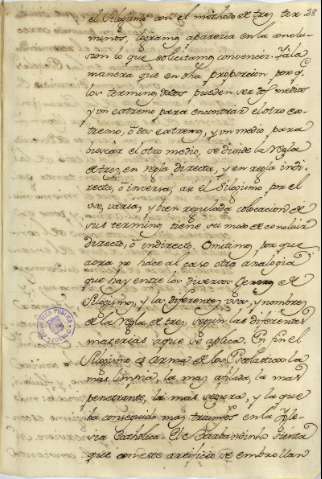 el Silogismo con el methodo de tres ter- 28
minos logramos aparezca en la conclu-
sion lo que solicitamos convencer. Y a la
manera que en dha proporcion por q.
los terminos dados pueden ser dos medios
y un extremo para encontrar el otro ex-
tremo, ò dos extremos, y un medio para
buscar el otro medio, se divide la Regla
de tres en regla directa, y en regla indi-
recta, ò inversa; asi el Silogismo, por el
vso, varia, y bien regulada colocacion de
sus terminos tiene su modo de concluir
directo, ò indirecto. Omitimos, por que
aora no hace al caso otra analogia
que hay entre los diversos de
Silogismos, y las diferentes, y nombres
de la Regla de tres segun las diferentes
materias à que se aplica. En fin el
Silogismo es Arma de los la
mas limpia, la mas afilada, la mas
penetrante, la mas segura, y la que
ha conseguido mas triumfos en la Igle-
sia Catholica. El Barbadiño sienta
que con este artificio se embrollan